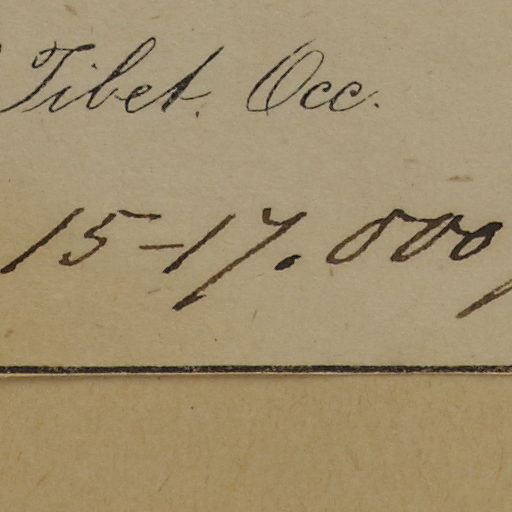 Tibet. Occ.
15-17.000